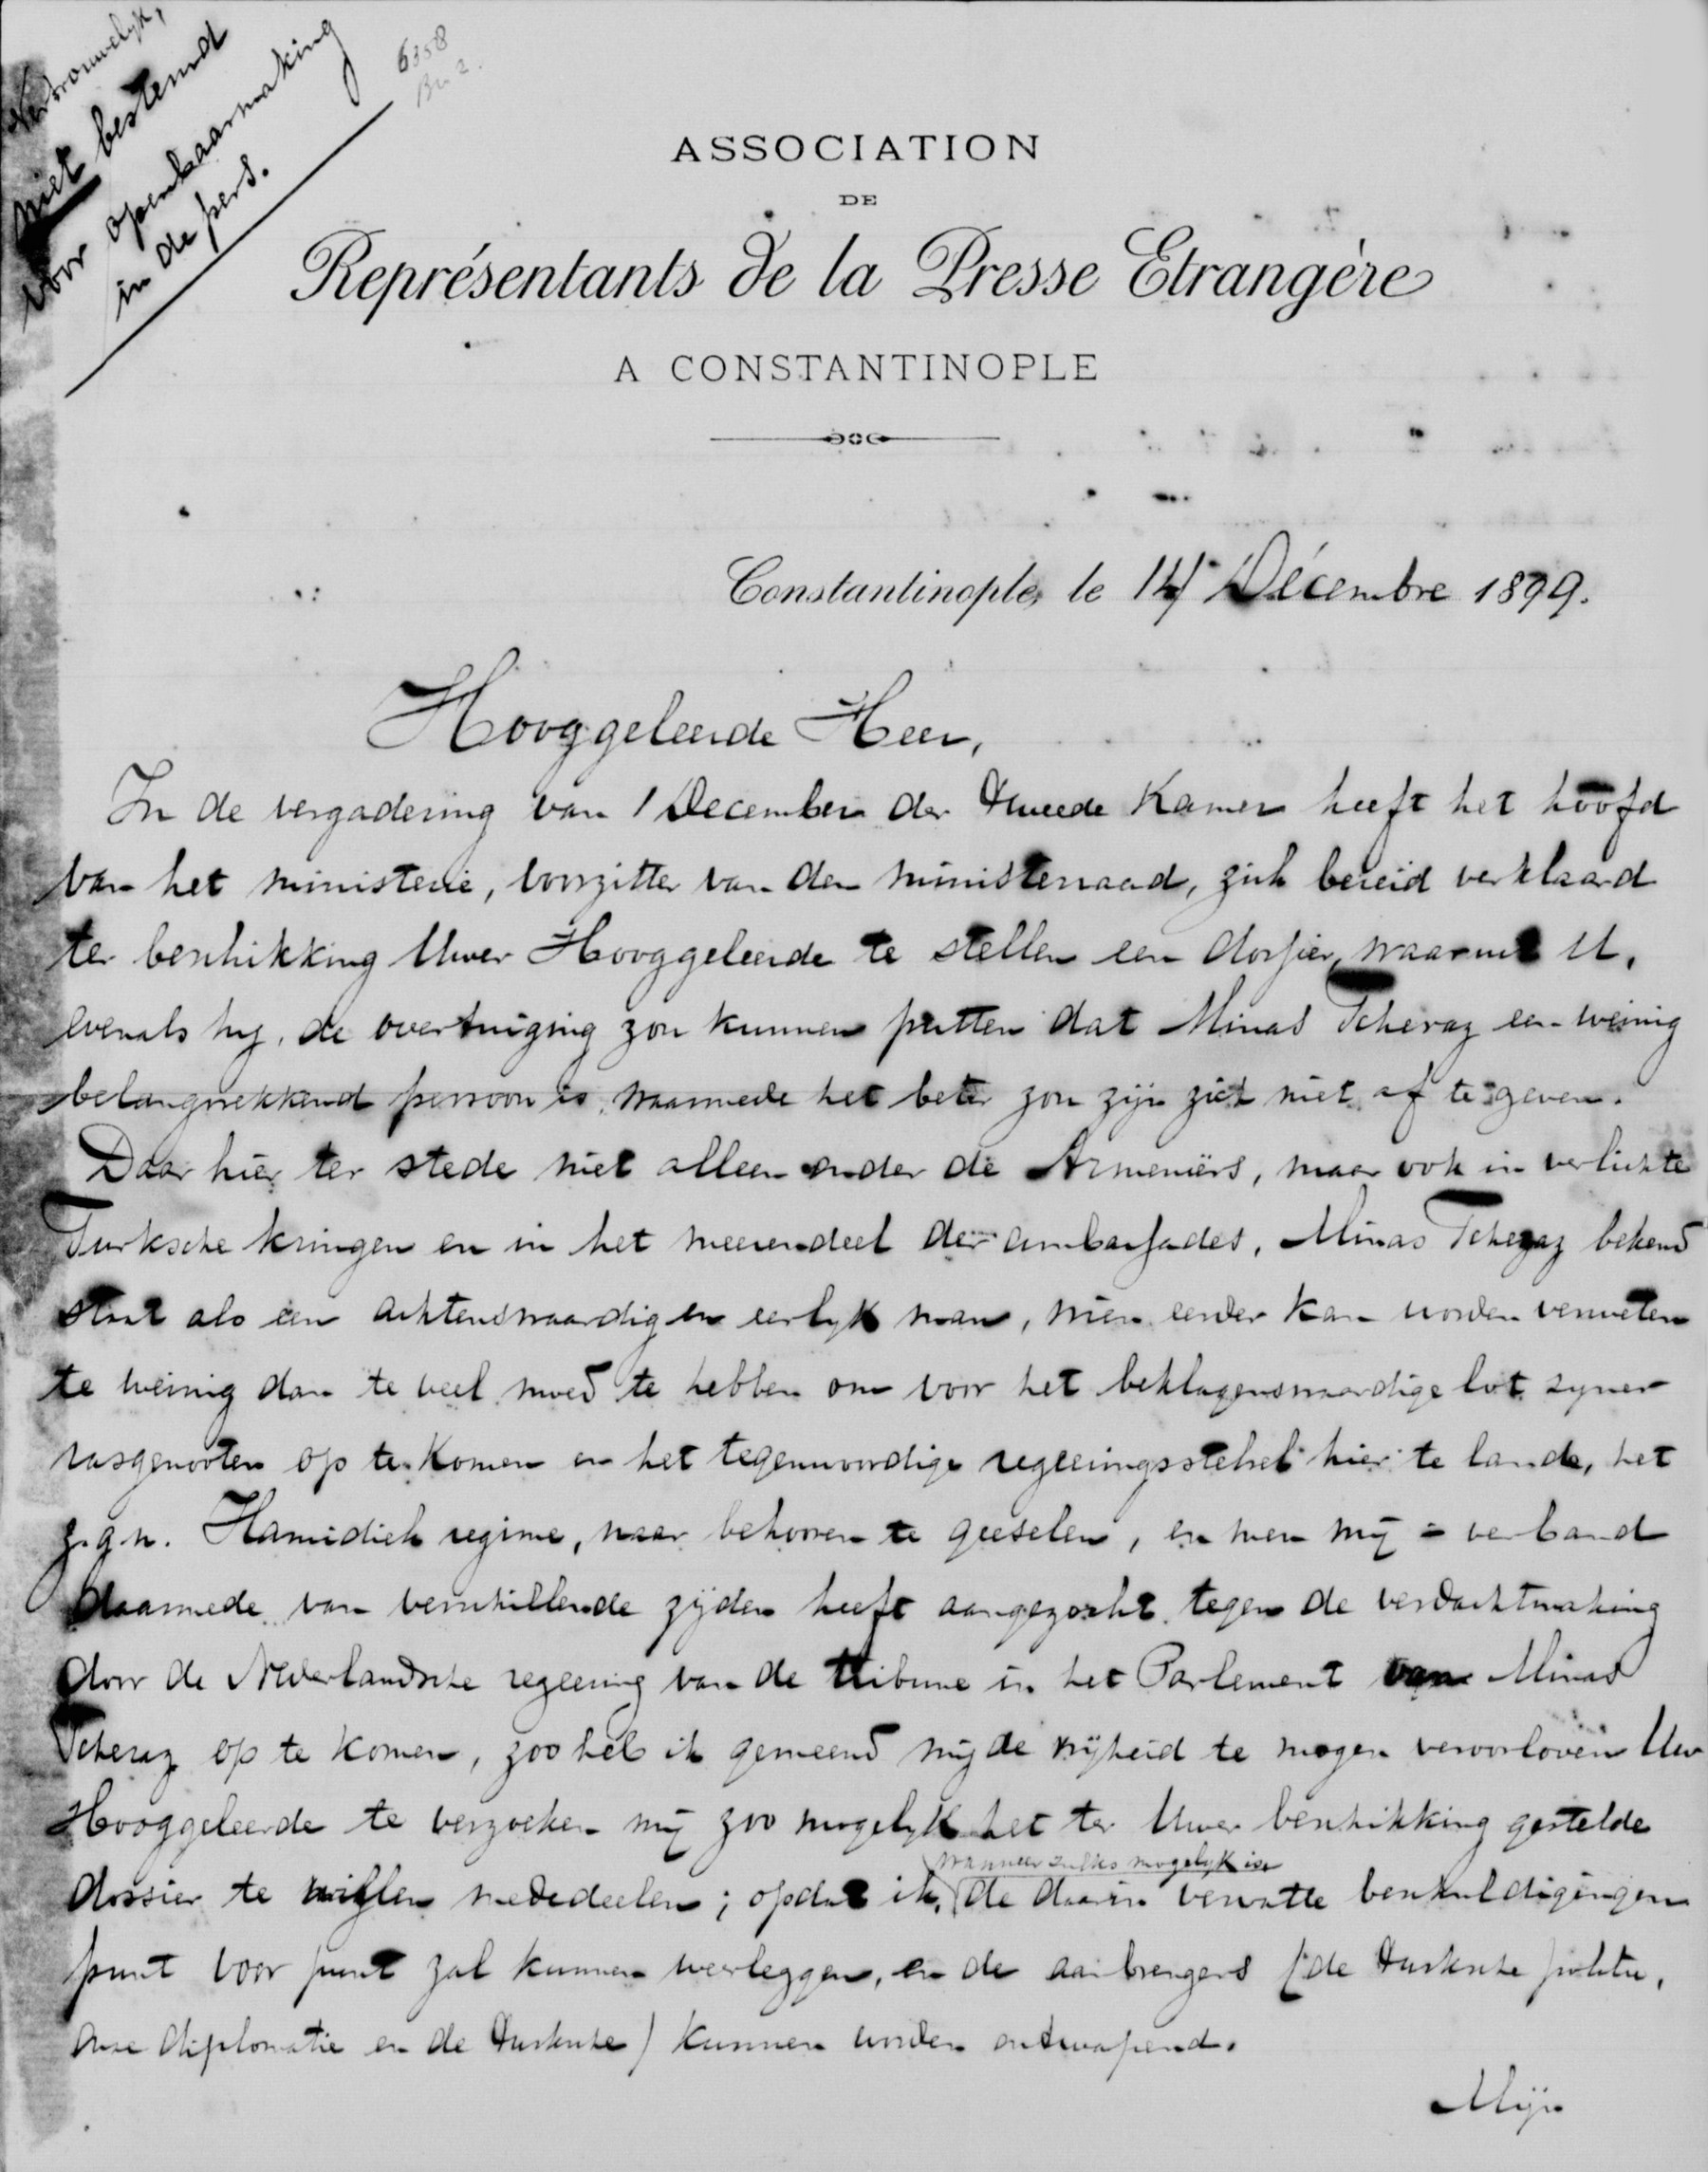 Vertrouwelijk,
niet bestemd
voor openbaarmaking
in de pers.
6358
ASSOCIATION
DE
Représentants de la Presse Etrangère
A CONSTANTINOPLE
Constantinople, le 14 Décembre 1899.
Hooggeleerde Heer,
In de vergadering van 1 December der Tweede Kamer heeft het hoofd
van het ministerie, voorzitter van den ministerraad, zich bereid verklaard
ter beschikking Uwer Hooggeleerde te stellen een dossier, waaruit U,
evenals hij, de overtuiging zou kunnen putten dat Minas Tcheraz een weinig
belangwekkend persoon is, waarmede het beter zou zijn zich niet af te geven.
Daar hier ter stede niet alleen onder de Armeniërs, maar ook in verlichte
Turksche kringen en in het meerendeel der ambassades, Minas Tcheraz bekend
staat als een achtenswaardig en eerlyk man, wien eerder kan worden verweten
te weinig dan te veel moed te hebben om voor het beklagenswaardige lot zyner
rasgenooten op te komen en het tegenwoordige regeeringsstelsel hier te lande, het
z.g.n. Hamidieh regime, naar behooren te geeselen, en men mij in verband
daarmede van verschillende zijden heeft aangezocht tegen de verdachtmaking
door de Nederlandsche regeering van de tribune in het Parlement van Minas
Tcheraz op te komen, zoo heb ik gemeend mij de vrijheid te mogen veroorloven Uw
Hooggeleerde te verzoeken mij zoo mogelyk het ter Uwer beschikking gestelde
dossier te willen mededeelen; opdat ik, wanneer zulks mogelyk is, de daarin vervatte beschuldigingen
punt voor punt zal kunnen weerleggen, en de aanbrengers (de Turksche politie,
onze diplomatie en de Turksche) kunnen worden ontwapend.
Mijn